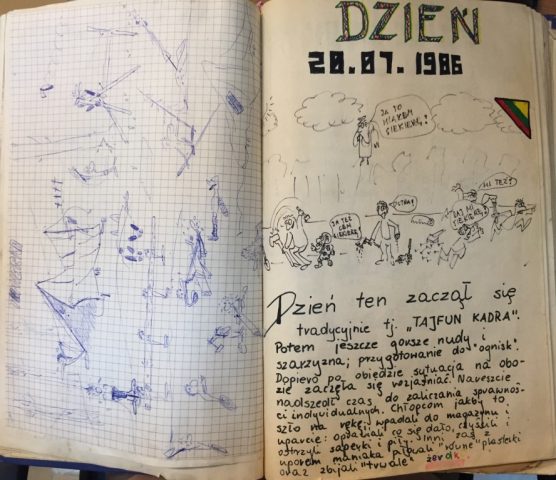 DZIEŃ
20.07.1986
JA TO
MIAŁEM
SIEKIERĘ?
JA TEŻ
CEM
SIEKIERĘ
MI TEŻ!
DAJ MI
SIEKIERĘ
Dzień ten zaczął się
tradycyjnie tj. „TAJFUN KADRA".
Potem jeszcze gorsze nudy i
szarzyzna; przygotowanie do "ognisk".
Dopiero po obiedzie sytuacja na obo-
zie zaczęła się wyjaśniać. Nareszcie
nadszedł czas do zaliczania sprawnoś-
ci indywidualnych. Chłopcom jakby to
szło na rękę; wpadali do magazynu i
uparcie: opalali co się dało, czyścili i
ostrzyli saperki i piły. Inni zaś z
uporem maniaka piłowali "równe" plasterki
oraz zbijali "trwałe" żerdki.